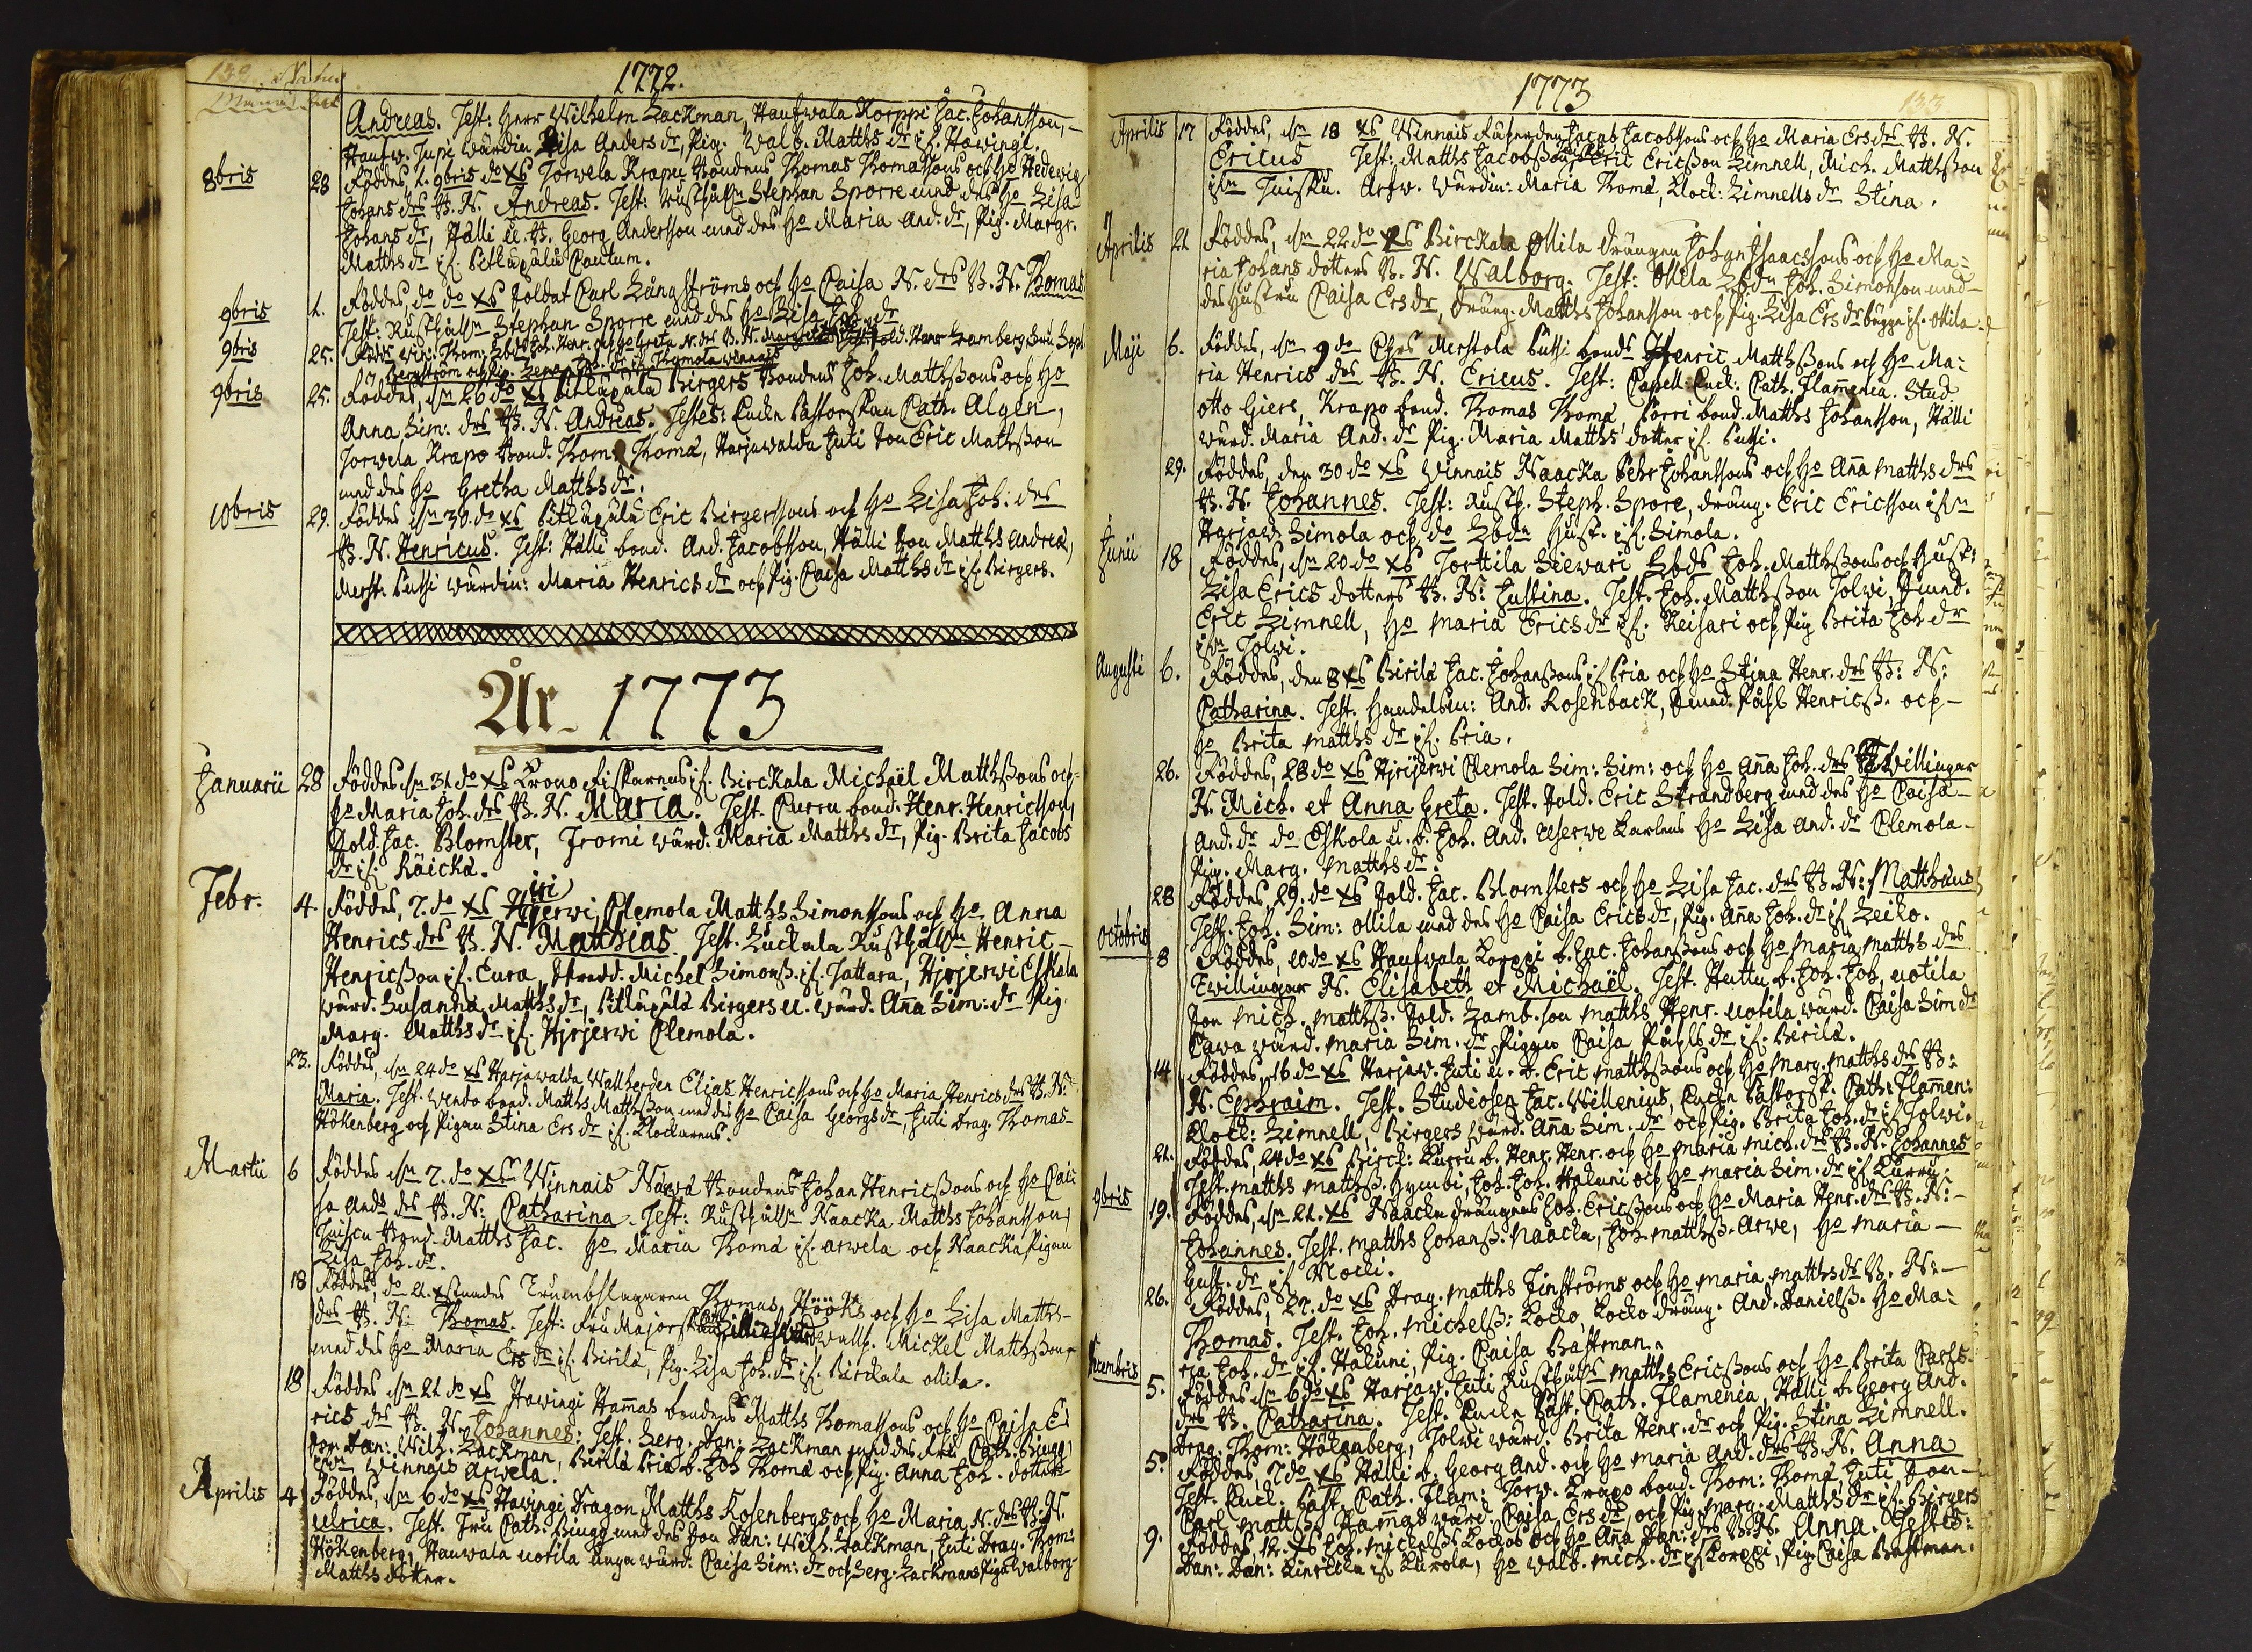 132. Natus
1772.
Månad. dat.
Andreas. Test: Herr Wilhelm Zackman, Haufwala Korppi Jac. Johansson,
Haufw. Jupi wärdin Lisa Anders dr, Pig. Walb. Matths dr if. Hawingi.
8bris 28 Föddes, 1. 9bris do Xts Torwela Krapu Bondens Thomas Thomassons och Ho Hedewig
Johans drs B. N. Andreas. Test: Rusthålln Stephan Sporre med des Ho Lisa
Johans dr, Hälli u. B. Georg Andersson med des Ho Maria And. dr, Pig. Margr.
Matths dr if. Pitkäpälä Pautum.
9bris 1. Föddes, do do Xts soldat Carl Långströms och Ho Caisa N. drs B. N. Thomas
Test. Rusthålln Stephan Sporre med des Ho Lisa Joh. dr
9bris 25.
9bris 25. Föddes, dn 26 do Xts Pitkäpälä Birgers Bondens Joh. Matthssons och Ho
Anna Sim: drs B. N. Andreas. Testes: Enckn Pastorskan Cath. Algen,
Torwela Krapo Bond. Thom: Thomæ, Harjawalda Juti Son Eric Mathsson
med des Ho Gretha Matths dr.
10bris 29. Föddes dn 30. do Xts Pitkäpälä Eric Birgerssons och Ho Lisa Joh: drs
B. N. Henricus. Test: Hälli bond. And. Jacobsson, Hälli Son Matths Andreæ,
Merst. Putsi wärdin: Maria Henrics dr och Pig. Caisa Matths dr if. Birgers.
År 1773
Januarii 28 Föddes dn 31 do Xts Krono Fiskarens if. Birckala Michaël Matthssons och
Ho Maria Joh. drs B. N. Maria. Test. Curru bond. Henr. Henricsson,
Sold. Jac. Blomster, Tromi wärd. Maria Matths dr, Pig. Brita Jacobs
dr if. Räickä.
Febr. 4. Föddes, 7. do Xts Hjrjerwi Clemola Matths Simonssons och Ho Anna
Henrics drs B. N. Matthias. Test. Luckala Rusthålln Henric
Henricsson if. Eura, Michel Simonss. if. Tattara, Hjrjerwi Eskola
wärd. Susanna Matths dr, Pitkäpälä Birgers u. wärd. Aña Sim: dr Pig.
Marg. Matths dr if. Hjrjerwi Clemola.
23. Föddes, dn 24 do Xts Harjawalda Wallherden Elias Henricssons och Ho Maria Henrics drs B. N.
Maria. Test. Wento bond. Matths Matthsson med des Ho Caisa Georgs dr, Juti Drag. Thomas
Hökenberg och Pigan Stina Ers dr if. Klockarens.
Martii 6 Föddes dn 7. do Xts Winnais Nawa Bondens Johan Henricssons och Ho Cai-
sa Ands drs B. N. Catharina. Test: Rusthålln Naacka Matths Johansson,
Juiscu Bond. Matths Jac. Ho Maria Thomæ if. Arwela och Naacka Pigan
Lisa Joh. dr.
18 Föddes, do 21. Trumbslagaren Thomas Hööks och Ho Lisa Matths
drs B. N: Thomas. Test: Fru Majorskan Mickel Matthsson
med des Ho Maria Ers dr if. Birilä, Pig. Lisa Joh. dr if. Birckala Ollila.
18 Föddes dn 21 do Xts Hawingi Hamas bondens Matths Thomassons och Ho Caisa E-
rics drs B. N. Johannes: Test. Serg. Dan: Zackman med des Fru Cath. Bingg,
Son Dan: Wilh. Zackman, Birilä Pria b. Joh Thomæ och Pig. Anna Joh. dotter
ifrn Winnais Arwela.
Aprilis 4 Föddes, dn 6 do Xts Hawingi Dragon Matths Rosenbergs och Ho Maria N. drs B. N.
Ulrica. Test. Fru Cath. Bingg med des Son Dan: Wilh. Zackman, Juti Drag. Thom:
Hökenberg, Hauwala Uotila unga wärd. Caisa Sim: dr och Serg. Zackmans Piga Walborg
Matths dotter.
1773
133.
Aprilis 17 Föddes, dn 18 Xts Winnais Jacob Jacobssons och Ho Maria Ers drs B. N.
Ericus Test: Matths Jacobsson Eric Ericsson Limnell, Mich. Matthsson
ifrn Juisku. Arfw. wärdin: Maria Thomæ, Klock: Limnells dr Stina.
Aprilis 21 Föddes, dn 22 do Xts Birckala Ollila Drängen Johan Isaacssons och Ho Ma-
ria Johans dotters B. N. Walborg. Test: Ollila Joh. Simonson med
des Hustru Caisa Ers dr, Dräng. Matths Johansson och Pig. Lisa Ers dr bägge if. Ollila.
Maji 6. Föddes, dn 9 do Merstola Putsi bonds Henric Matthssons och Ho Ma-
ria Henrics drs B. N. Ericus. Test: Capell: Enck: Cath. Flamenia. Stud
Otto Giers, Krapo bond. Thomas Thomæ, Porri bond. Matths Johansson, Hälli
wärd. Maria And. dr Pig. Maria Matths dotter if. Putsi.
29. Föddes, den 30 do Xts Winnais Naacka Pehr Johanssons och Ho Aña Matths drs
B. N. Johannes. Test: Rusth. Steph. Spore, dräng. Eric Ericsson ifrn
Harjaw. Simola och do Hust. if. Simola.
Junii 18 Föddes, dn 20 do Xts Torttila Siewari Joh. Matthssons och Hust:
Lisa Erics dotters B. N: Justina. Test. Joh. Matthsson Tolwi,
Eric Limnell, Ho Maria Erics dr if. Keisari och Pig Brita Joh dr
ifrn Tolwi.
Augusti 6. Föddes, den 8 Xts Birilä Jac. Johanssons if Pria och Ho Stina Henr. drs B: N:
Catharina. Test. Handelsm: And. Rosenback, Påhl Henricss. och
Ho Brita Matths dr if. Pria.
26. Föddes, 28 do Xts Hjrijerwi Clemola Sim: Sim: och Ho Aña Joh. drs Twillingar
N. Mich. et Anna Greta. Test. Sold. Eric Strandberg med des Ho Caisa
And. dr do Eskola u. b. Joh. And. Ho Lisa And. dr Clemola
Pig. Marg. Matths dr.
28 Föddes, 29. do Xts Sold. Jac. Blomsters och Ho Lisa Jac. drs B. N: Matthæus
Test. Joh. Sim: Ollila med des Ho Caisa Erics dr, Pig. Aña Joh. dr if Leiko.
Octobris 8 Föddes, 10 do Xts Haufwala Korppi b. Jac. Johanssons och Ho Maria Matths drs
Twillingar N. Elisabeth et Michaël. Test. Huttu b. Joh. Joh, Uotila
Son Mich. Matthss. Sold. Lamb. son Matths Henr. Uotila wärd. Caisa Sim dr
Cawa wärd. Maria Sim. dr Pigan Caisa Påhls dr if. Birilä.
14 Föddes, 16 do Xts Harjaw. Juti u. b. Eric Matthssons och Ho Marg. Matths drs B:
N. Ephraim. Test. Studiosen Jac. Willenius, Enckn Pastorsk: Cath. Flamen:
Klock: Limnell, Birgers wärd. Aña Sim. dr och Pig. Brita Joh. dr if Tolwi.
21. Föddes, 24 do Xts Birck: Kurru b. Henr. Henr. och Ho Maria Mich. drs B. N. Johannes
Test. Matths Matthss. Hymbi, Joh. Joh. Haluni och Ho Maria Sim. dr if Kurru.
9bris 19. Föddes, dn 21. Xts Naacka Drängens Joh. Ericssons och Ho Maria Henr. drs B. N:
Johannes. Test. Matths Johanss. Naacka, Joh. Matthss. Arwe, Ho Maria
Gust. dr if Mocki.
26. Föddes, 27. do Xts Drag. Matths Finströms och Ho Maria Matths dr B. N:
Thomas. Test. Joh. Michelss: Kocko, Kocko dräng. And. Danielss. Ho Ma-
ria Joh. dr if. Haluni, Pig. Caisa Bastman.
Decembris 5. Föddes dn 6 do Xts Harjaw. Juti Rusthålns Matths Ericssons och Ho Brita Carls
drs B. Catharina. Test. Enckn Past. Cath. Flamenia, Hälli b. Georg And.
Drag. Thom: Hökenberg, Tolwi wärd. Brita Henr. dr och Pig. Stina Limnell.
5. Föddes, 7 do Xts Hälli b. Georg And. och Ho Maria And. drs B. N. Anna
Test. Enck. Past. Cath. Flam: Torw. Krapo bond. Thom: Thomæ, Juti Son
Carl Matthss. Hamas wärd. Caisa Ers dr, och Pig. Marg. Matths dr if. Birgers
9. Föddes, 12. Xts Joh. Michelss Kockos och Ho Aña Dan: drs B. N. Anna. Testes:
Dan: Dan: if Kurola, Ho Walb. Mich. dr if Korppi, Pig. Caisa Bastman.